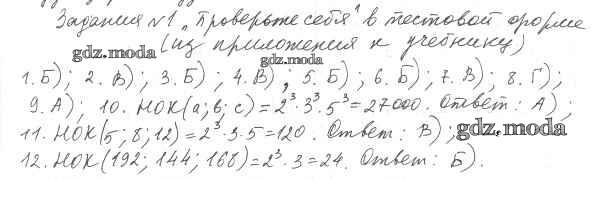 Задания №1 „Проверьте себя" в тестовой форме
(из приложения к учебнику)
gdz.moda
gdz.moda
1. Б); 2. В); 3. Б); 4. В); 5. Б); 6. Б); 7. В); 8. Г);
9. А); 10. НОК(а; в; с) = 2³·3³·5³ = 27000. Ответ: А);
11. НОК(5; 8; 12) = 2³·3·5 = 120. Ответ: В);
gdz.moda
12. НОК(192; 144; 168) = 2³·3 = 24. Ответ: Б).